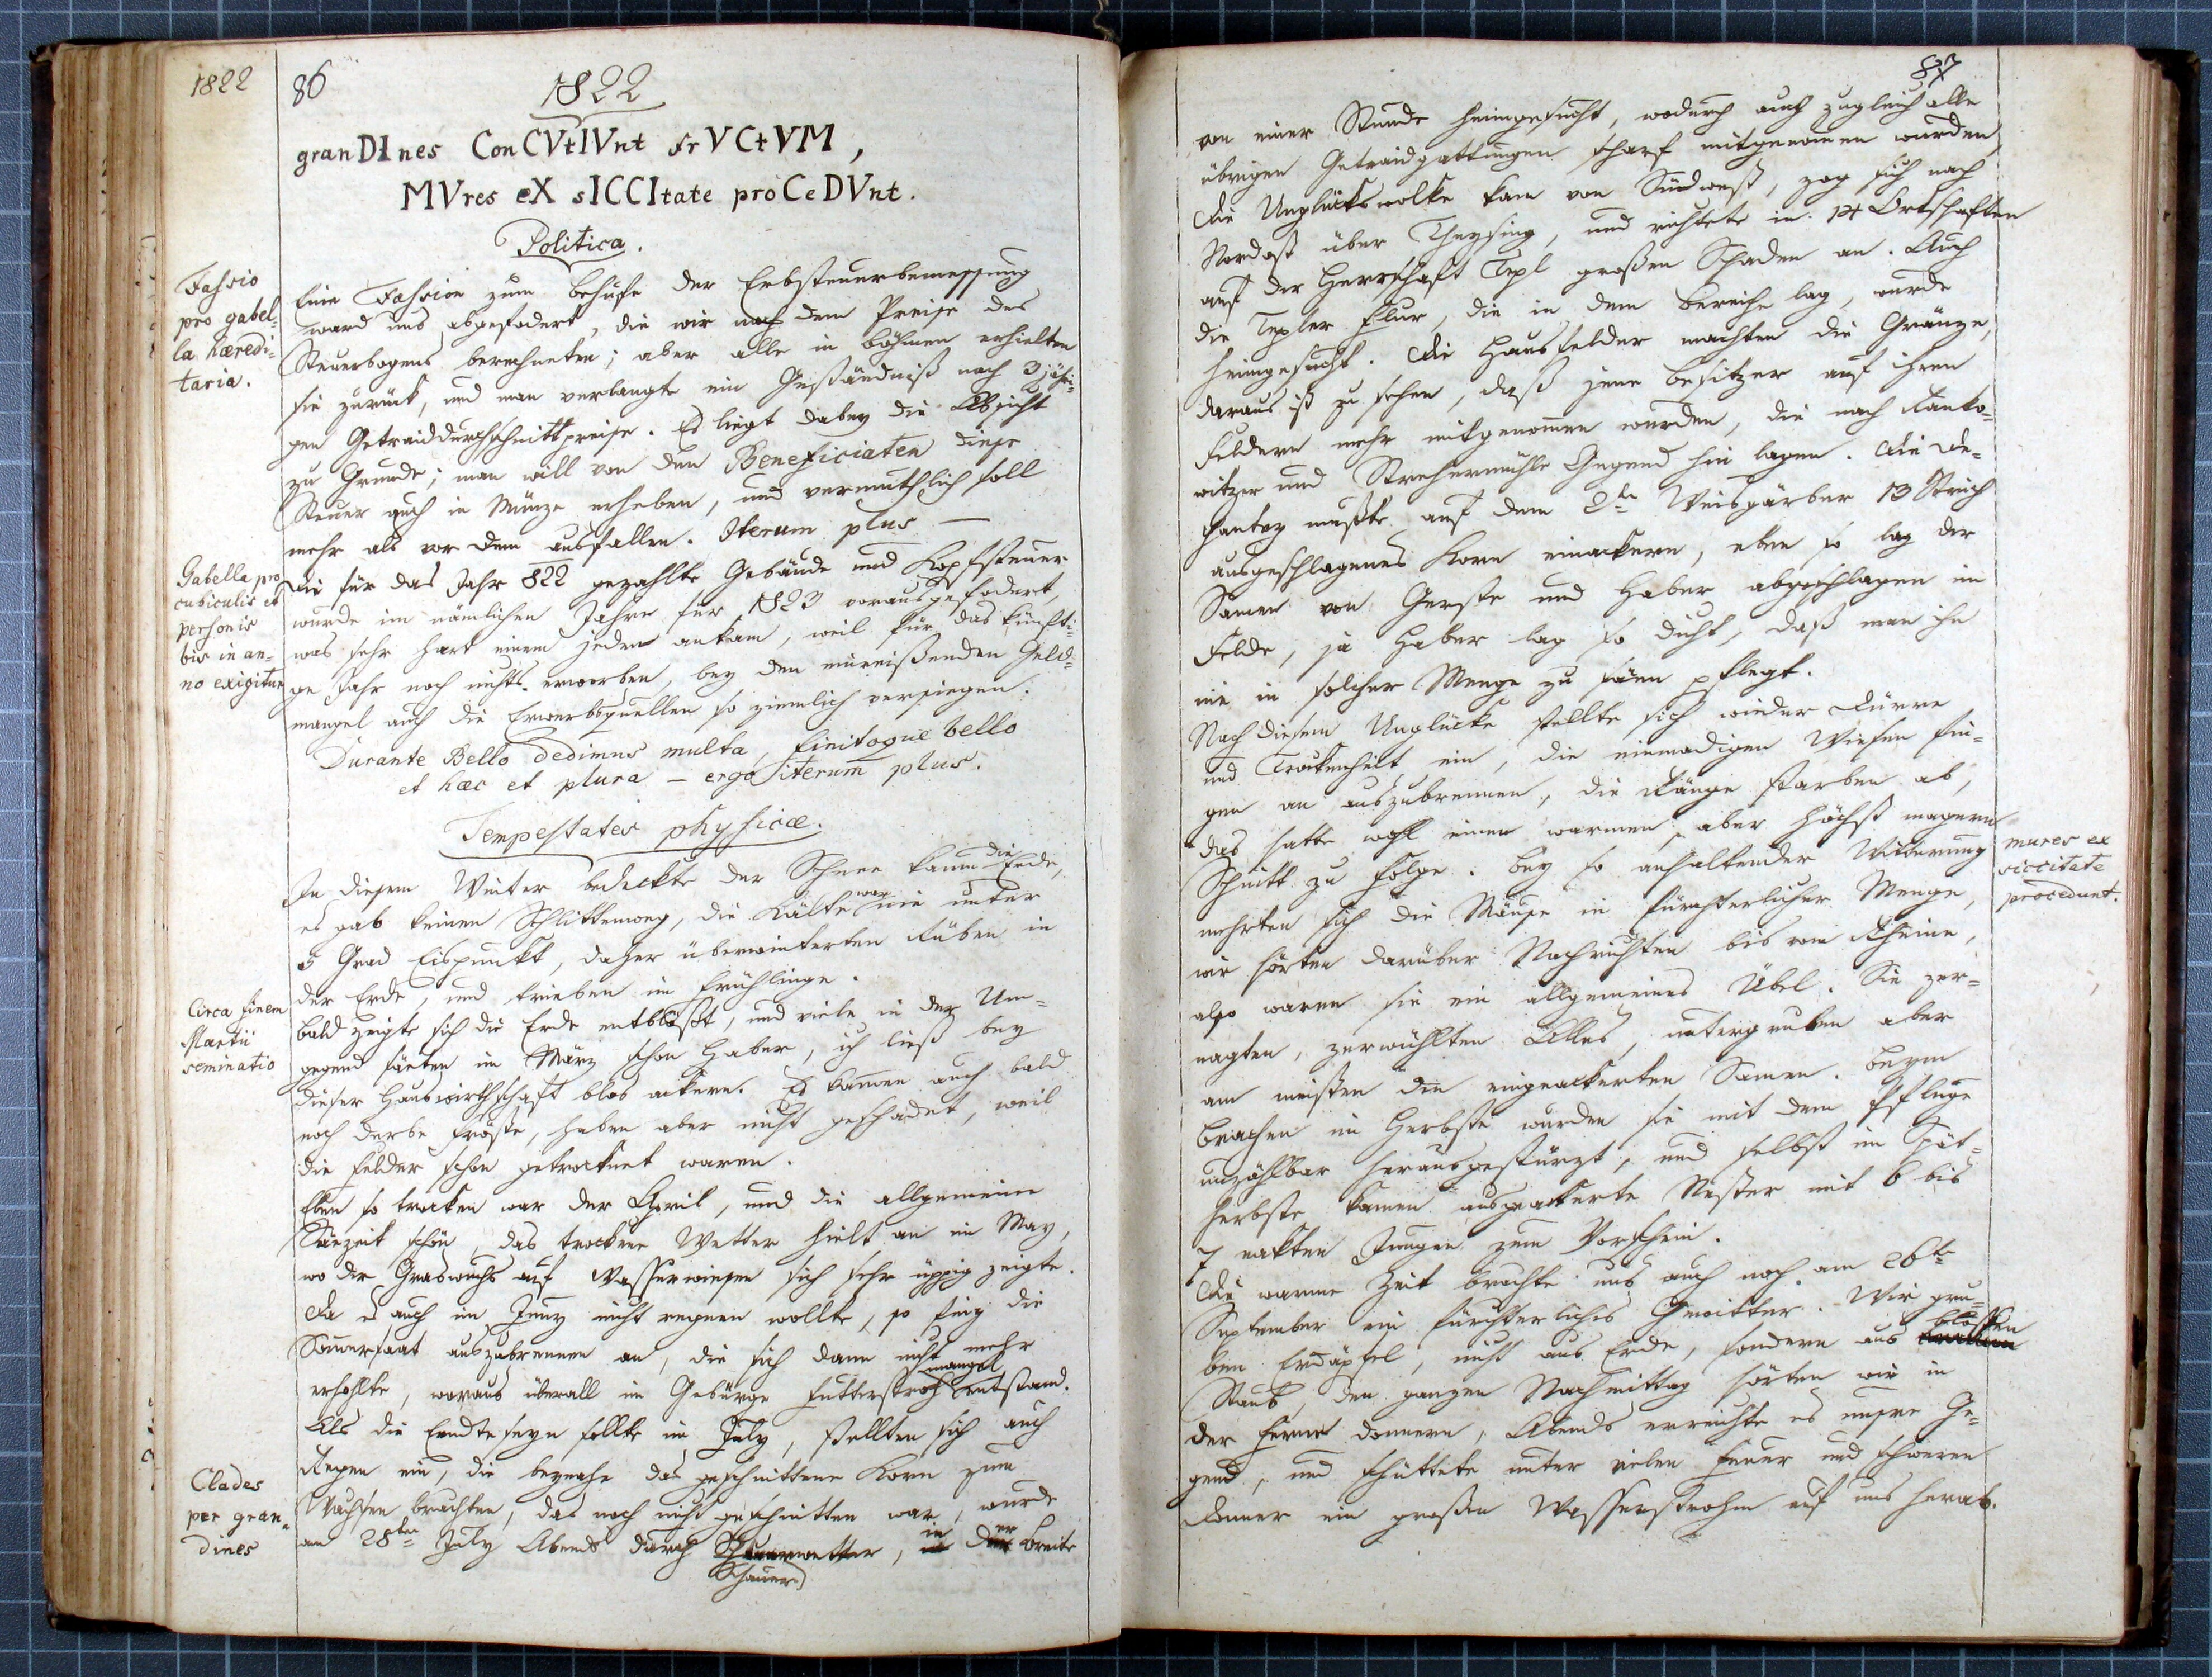 1822
86
1822
granDInes ConCVtIVnt frVCtVM,
MVres eX sICCItate proCeDVnt.
Politica.
Fassio
pro gabel=
la hæredi=
taria.
Eine Fassion zum Behufe der Erbsteuerbemessung
ward uns abgefodert, die wir nach dem Preise des
Steuerbogens berechneten; aber alle in Böhmen erhielten
sie zurück, und man verlangte ein Geständniß nach 3jähri=
gen Getraiddurchschnittpreise. Es liegt dabey die Absicht
zu Grunde; man will von den Beneficiaten diese
Steuer auch in Münze erheben, und vermuthlich soll
mehr als vor dem ausfallen. Iterum plus —
Gabella pro
cubiculis et
personis
bis in an=
no exigitur
Die für das Jahr 822 gezahlte Gebäude und Kopfsteuer
wurde im nämlichen Jahre für 1823 vorausgefodert,
was sehr hart einem jeden ankam, weil für das künfti=
ge Jahr noch nichts erworben, bey den einreißenden Geld=
mangel auch die Erwerbsquellen so ziemlich versiegen.
Durante Bello dedimus multa, finitoque bello
et hæc et plura – ergo iterum plus.
Tempestates physicæ.
In diesem Winter bedeckte der Schnee kaum die Erde,
es gab keinen Schlittenweg, die Kälte war nie unter
5 Grad Eispunkt, daher überwinterten Rüben in
der Erde, und trieben im Frühlinge.
Circa finem
Martii
seminatio
Bald zeigte sich die Erde entblößt, und viele in der Um=
gegend säeten im März schon Haber, ich ließ bey
dieser Hauswirthschaft blos ackern. Es kamen auch bald
noch derbe Fröste, haben aber nicht geschadet, weil
die Felder schon getrocknet waren.
Eben so trocken war der April, und die allgemeine
Säezeit schön, das trockene Wetter hielt an im May,
wo der Graswuchs auf Wasserwiesen sich sehr üppig zeigte.
Da es auch im Juny nicht regnen wollte, so fing die
Sommersaat auszubrennen an, die sich dann nicht mehr
erhohlte, woraus überall im Gebürge Futterstroh mangel entstand.
Als die Erndte seyn sollte im July, stellten sich auch
Regen ein, die beynahe das geschnittene Korn zum
Clades
per gran=
dines
Wachsen brachten, das noch nicht geschnitten war, wurde
am 28ten July Abends durch Schauerwetter, in der Breite
Schauer
87
von einer Stunde heimgesucht, wodurch auch zugleich alle
übrigen Getraidgattungen scharf mitgenommen wurden,
die Unglückswolke kam von Südwest, zog sich nach
Nordost über Theysing, und richtete in 14 Ortschaften
auf der Herrschaft Tepl großen Schaden an. Auch
die Tepler Flur, die in dem Bereiche lag, wurde
heimgesucht. Die Hausfelder machten die Gränze,
daraus ist zu sehen, daß jene Besitzer auf ihren
Feldern mehr mitgenommen wurden, die nach Ranko=
witzer und Strehermühle Gegend hin lagen. Die De=
chantey mußte auf dem Weisgärber 13 Strich
ausgeschlagenes Korn einackern, eben so lag der
Samen von Gerste und Haber abgeschlagen im
Felde, ja Haber lag so dicht, daß man ihn
nie in solcher Menge zu säen pflegt.
Nach diesem Unglücke stellte sich wieder Dürre
und Trockenheit ein, die einmadigen Wiesen fin=
gen an auszubrennen, die Ränge starben ab,
das hatte wohl einen warmen, aber höchst magern
Schnitt zu Folge. Bey so anhaltender Witterung
mures ex
siccitate
procedunt.
mehrten sich die Mäuse in fürchterlicher Menge,
wir hörten darüber Nachrichten bis vom Rheine,
also waren sie ein allgemeines Übel. Sie zer=
nagten, zerwühlten Alles, untergruben aber
am meisten die eingeackerten Samen. Beym
Brachen im Herbste wurden sie mit dem Pfluge
unzählbar herausgestürzt, und selbst im Spät=
herbste kamen ausgeackerte Nester mit 6 bis
7 nakten Jungen zum Vorschein.
Die warme Zeit brachte uns auch noch am 26te
September ein fürchterliches Gewitter. Wir gru=
ben Erdäpfel, nicht aus Erde, sondern aus bloßen
Staub, den ganzen Nachmittag hörten wir in
der Ferne donnern, Abends erreichte es unsere Ge=
gend, und schüttete unter vielen Feuer und schweren
Donner ein großen Wasserstrohm auf uns herab.